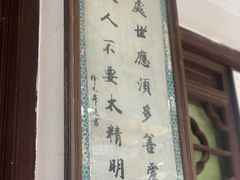 處世應須多善愛
人不要太精明